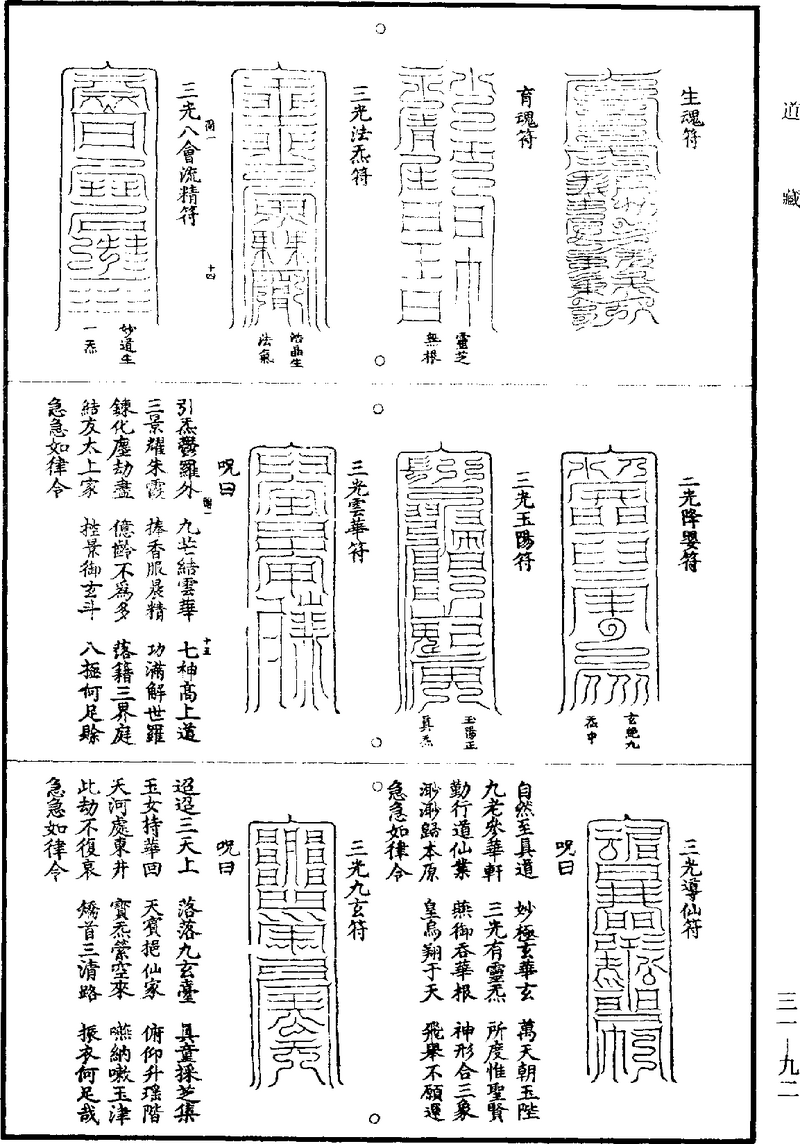 道藏
三一—九二
生魂符
育魂符
靈芝
無根
三光法炁符
浩晶生
法氣
三光八會流精符
十四
妙道生
一炁
二光降嬰符
玄絕九
炁中
三光玉陽符
玉陽正
真炁
三光雲華符
呪曰
引炁鬱羅外 九芒結雲華 七神高上道
三景耀朱霞 捧香服晨精 功滿解世羅
鍊化塵劫盡 億齡不為多 落籍三界庭
結友太上家 控景御玄斗 八極何足賒
急急如律令
十五
三光導仙符
呪曰
自然至真道 妙極玄華玄 萬天朝玉陛
九老參華軒 三光有靈炁 所度惟聖賢
勤行道仙業 燕御吞華根 神形合三象
渺渺歸本原 皇鳥翔于天 飛舉不願還
急急如律令
三光九玄符
呪曰
迢迢三天上 落落九玄臺 真童採芝集
玉女持華回 天賓挹仙家 俯仰升瑤階
天河處東井 寶炁縈空來 嚥納嗽玉津
此劫不復哀 矯首三清路 振衣何足哉
急急如律令